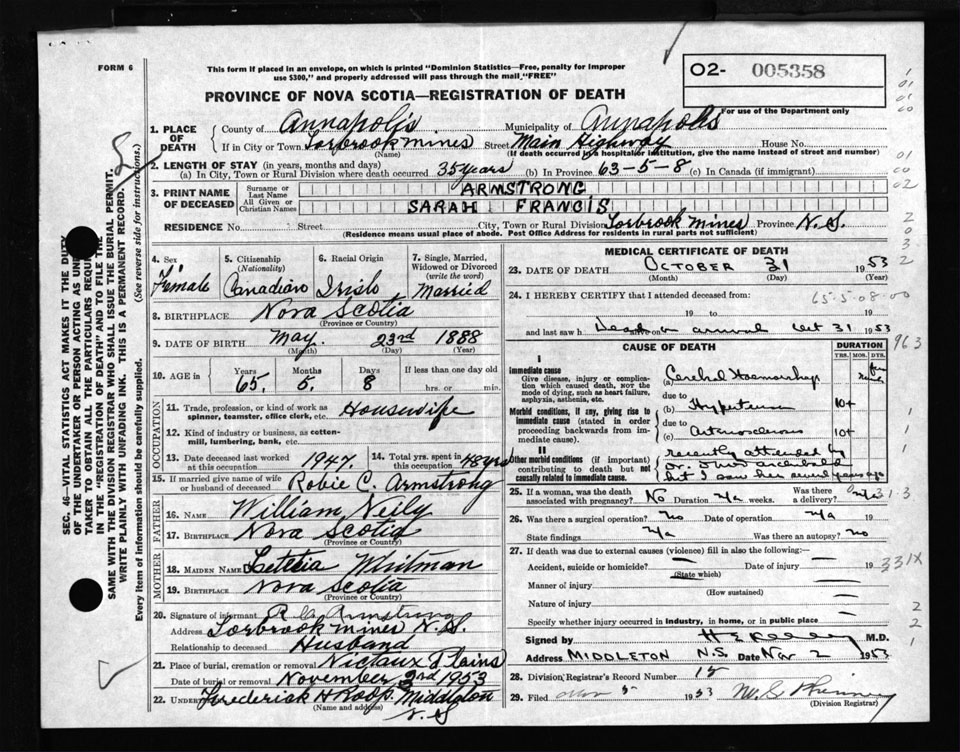 FORM 6
This form if placed in an envelope, on which is printed "Dominion Statistics—Free, penalty for improper
use $300," and properly addressed will pass through the mail "FREE"
02- 005358
For use of the Department only
PROVINCE OF NOVA SCOTIA—REGISTRATION OF DEATH
1. PLACE OF DEATH
County of Annapolis Municipality of Annapolis
If in City or Town Torbrook Mines Street Main Highway House No.
(Name) (If death occurred in a hospital or institution, give the name instead of street and number)
2. LENGTH OF STAY (in years, months and days)
(a) In City, Town or Rural Division where death occurred 35 years (b) In Province 63-5-8 (c) In Canada (if immigrant)
3. PRINT NAME OF DECEASED
Surname or Last Name ARMSTRONG
All Given or Christian Names SARAH FRANCIS
RESIDENCE No. Street City, Town or Rural Division Torbrook Mines Province N.S.
(Residence means usual place of abode. Post Office Address for residents in rural parts not sufficient)
SEC. 46—VITAL STATISTICS ACT MAKES IT THE DUTY
OF THE UNDERTAKER OR PERSON ACTING AS
TAKER TO OBTAIN ALL THE PARTICULARS
IN THE "REGISTRATION OF DEATH" AND TO FILE
SAME WITH THE DIVISION REGISTRAR WHO SHALL ISSUE THE BURIAL PERMIT.
WRITE PLAINLY WITH UNFADING INK. THIS IS A PERMANENT RECORD.
Every item of information should be carefully supplied. (See reverse side for instructions.)
4. Sex Female
5. Citizenship (Nationality) Canadian
6. Racial Origin Irish
7. Single, Married, Widowed or Divorced (write the word) Married
8. BIRTHPLACE Nova Scotia
(Province or Country)
9. DATE OF BIRTH May 23rd 1888
(Month) (Day) (Year)
10. AGE in Years 65 Months 5 Days 8 If less than one day
hrs. or min.
OCCUPATION
11. Trade, profession, or kind of work as
spinner, teamster, office clerk, etc. Housewife
12. Kind of industry or business, as cotton-
mill, lumbering, bank, etc.
13. Date deceased last worked at this occupation 1947.
14. Total yrs. spent in this occupation 48 yrs
15. If married give name of wife
or husband of deceased Robie C. Armstrong
FATHER
16. NAME William Neily
17. BIRTHPLACE Nova Scotia
(Province or Country)
MOTHER
18. MAIDEN NAME Letetia Whitman
19. BIRTHPLACE Nova Scotia
(Province or Country)
20. Signature of informant R C Armstrong
Address Torbrook Mines N.S.
Relationship to deceased Husband
21. Place of burial, cremation or removal Nictaux Plains
Date of burial or removal November 2nd 1953
22. UNDERTAKER Frederick H Roop. Middleton
(Name and address) N.S
MEDICAL CERTIFICATE OF DEATH
23. DATE OF DEATH OCTOBER 31 1953
(Month) (Day) (Year)
24. I HEREBY CERTIFY that I attended deceased from:
65-5-08-00
19 to 19
and last saw h alive on Dead on arrival Oct 31 1953
CAUSE OF DEATH
DURATION
YRS. MOS. DYS.
I
Immediate cause
Give disease, injury or complication which caused death, NOT the mode of dying, such as heart failure, asphyxia, asthenia, etc.
(a) Cerebral Haemorrhage
due to
(b) Hypertension 10+
due to
(c) Arteriosclerosis 10+
Morbid conditions, if any, giving rise to immediate cause (stated in order proceeding backwards from immediate cause).
II
Other morbid conditions (if important) contributing to death but not causally related to immediate cause.
recently attended by
but I saw her several years ago
25. If a woman, was the death associated with pregnancy? No Duration n/a weeks. Was there a delivery?
26. Was there a surgical operation? no Date of operation n/a 19
State findings n/a Was there an autopsy? no
27. If death was due to external causes (violence) fill in also the following:—
Accident, suicide or homicide? Date of injury 19
(State which)
Manner of injury
(How sustained)
Nature of injury
Specify whether injury occurred in industry, in home, or in public place
331X
963
Signed by M.D.
Address MIDDLETON N.S. Date Nov 2 1953
28. Division Registrar's Record Number 15
29. Filed Nov 5 1953
(Division Registrar)